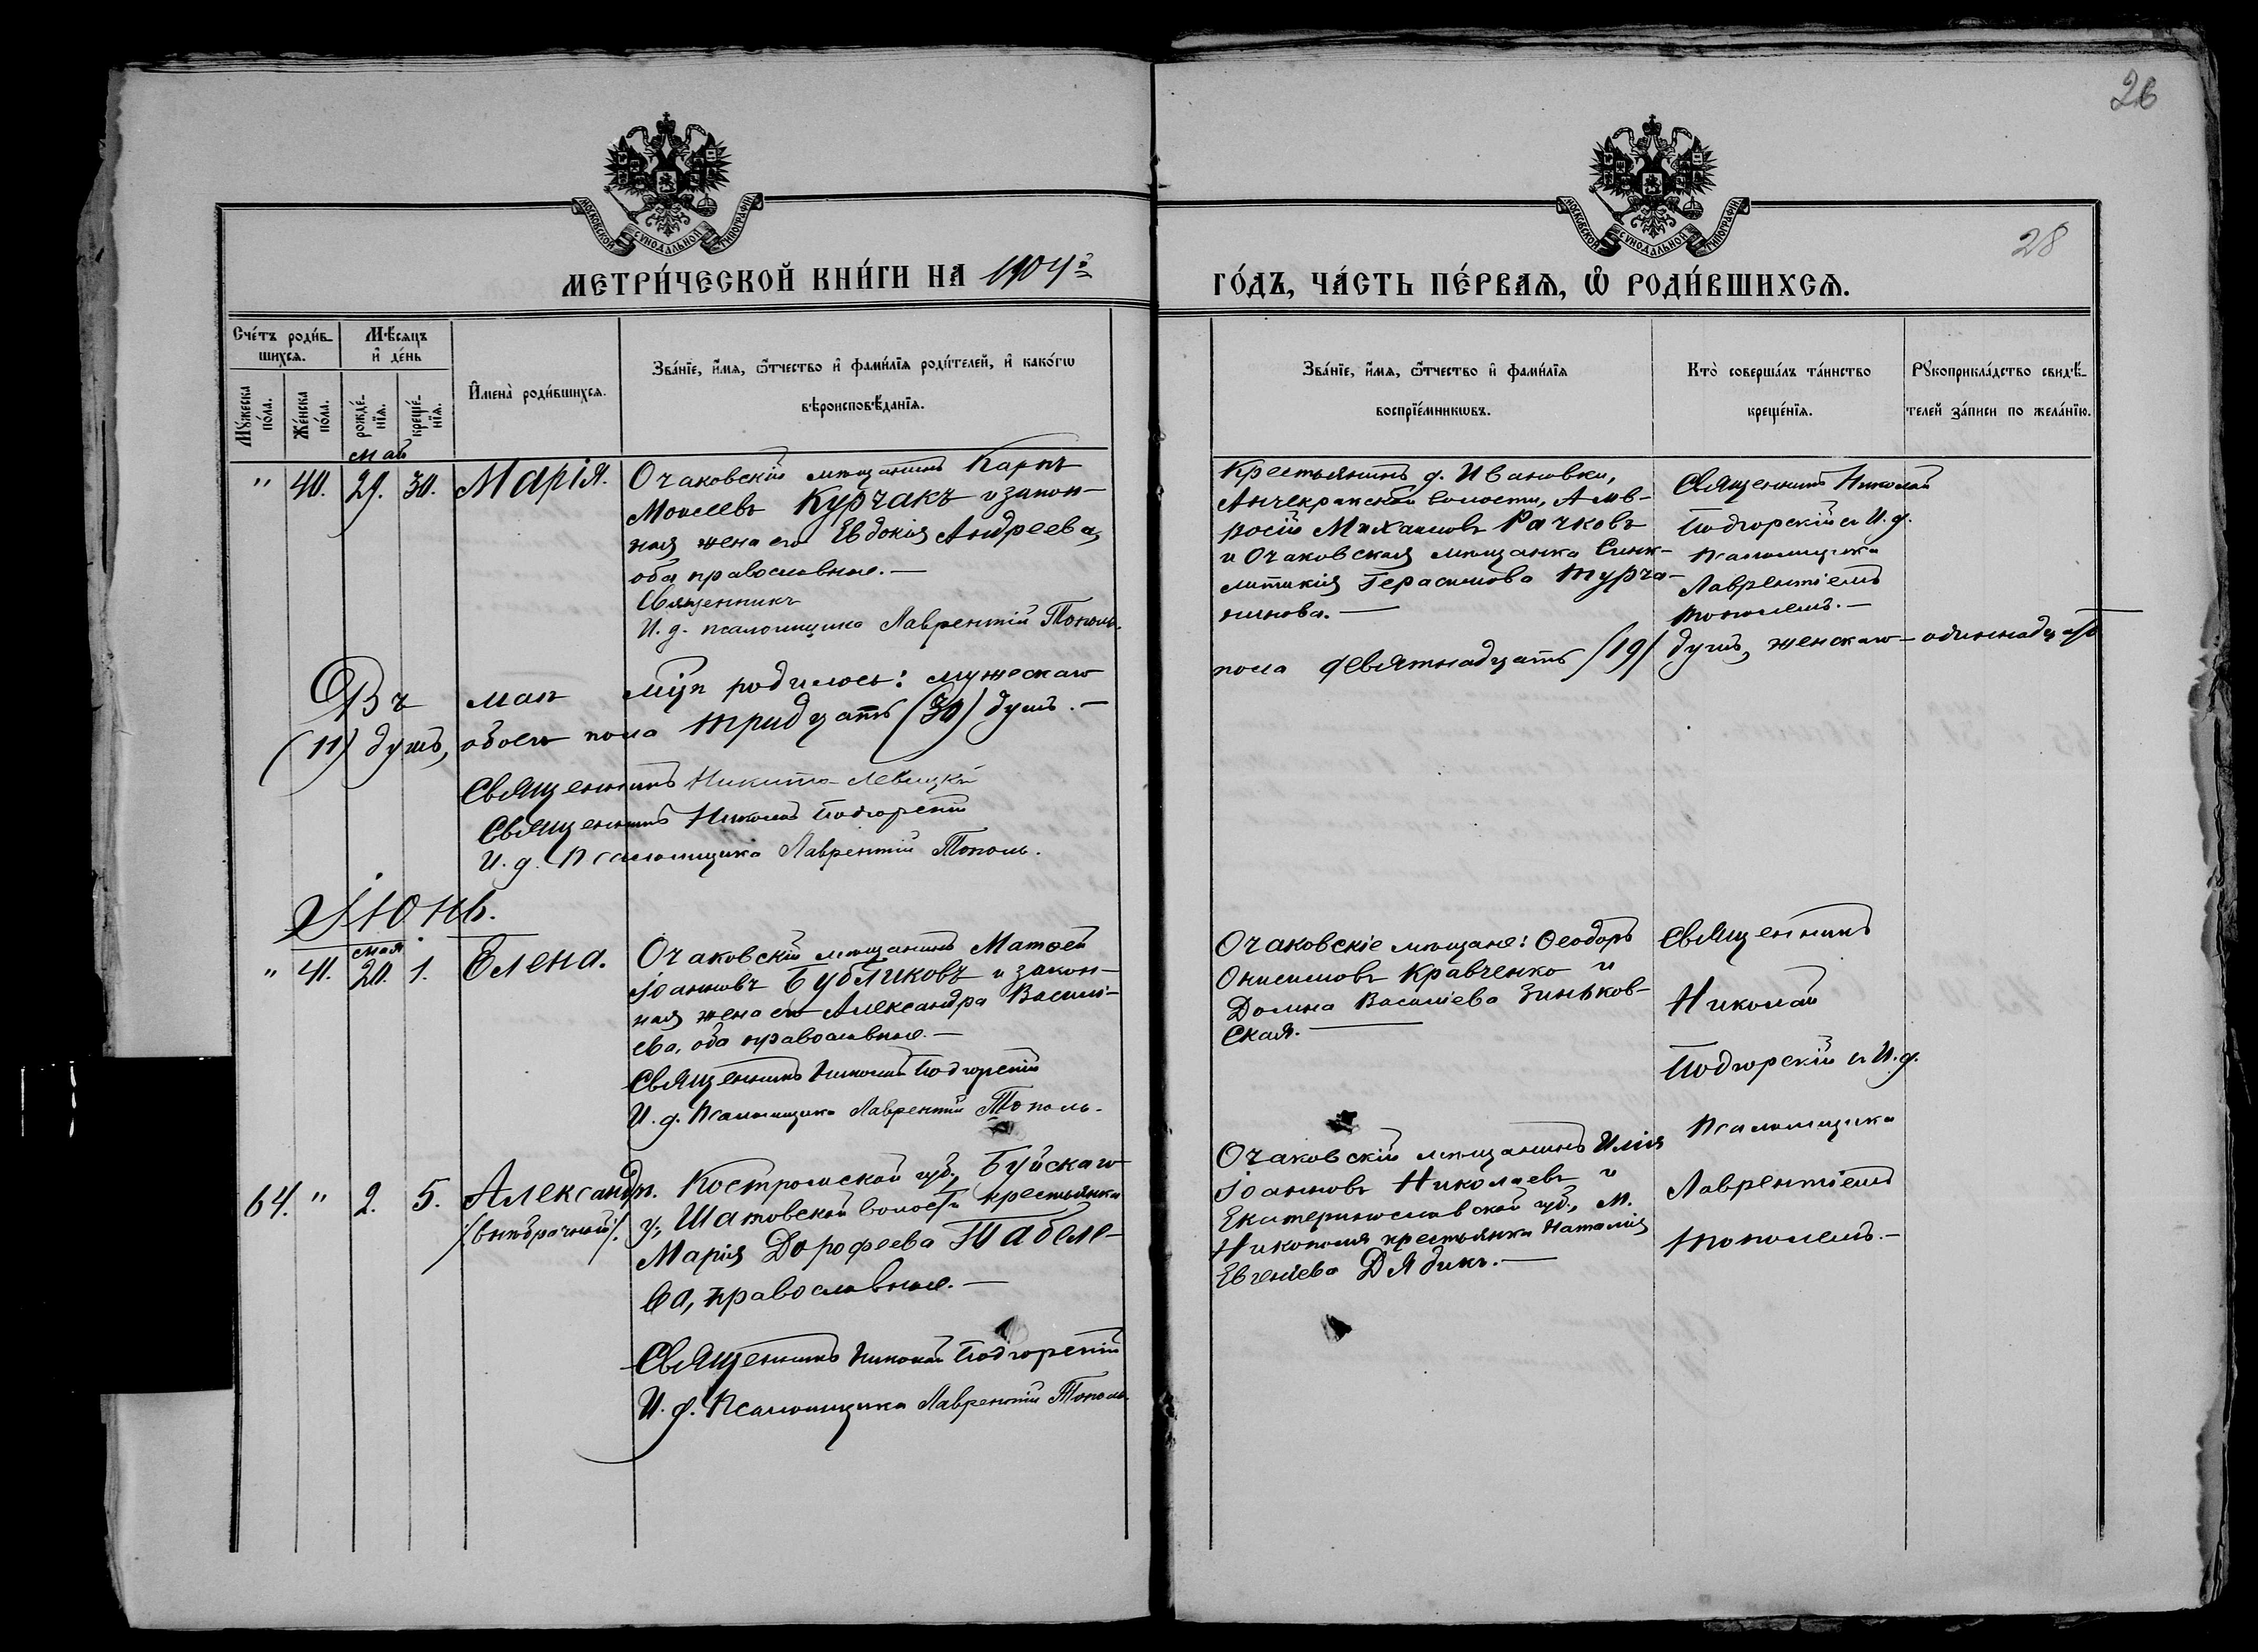 26
28
МОСКОВСКОЙ СѴНОДАЛЬНОЙ ТИПОГРАФІИ
МОСКОВСКОЙ СѴНОДАЛЬНОЙ ТИПОГРАФІИ
МЕТРИ́ЧЕСКОЙ КНИ́ГИ НА 1904 г.
ГО́ДЪ, ЧА́СТЬ ПЕ́РВАѦ, Ѡ҆ РОДИ́ВШИХСѦ.
Сче́тъ роди́в-
шихсѧ.
Мѣ́сѧцъ
и҆ де́нь
Мꙋ́жеска
по́ла.
Же́нска
по́ла.
рожде́-
нїѧ.
креще́-
нїѧ.
И҆мена̀ роди́вшихсѧ.
Зва́нїе, и҆́мѧ, ѻ҆́тчество и҆ фами́лїѧ роди́телей, и҆ како́гѡ
вѣроисповѣ́данїѧ.
Зва́нїе, и҆́мѧ, ѻ҆́тчество и҆ фами́лїѧ
воспрїе́мникѡвъ.
Кто̀ соверша́лъ та́инство
креще́нїѧ.
Рꙋкоприкла́дство свидѣ́-
телей за́писи по жела́нїю.
май
" 40. 29. 30. Марія.
Очаковскій мѣщанинъ Карпъ
Моисеевъ Курчакъ и закон-
ная жена его Евдокія Андреева,
оба православные.—
Священникъ
И. д. псаломщика Лаврентій Тополь.
Крестьянинъ д. Ивановки,
Анчекракской волости, Амв-
росій Михаиловъ Рачковъ
и Очаковская мѣщанка Синк-
литикія Герасимова Турча-
нинова.—
Священникъ Николай
Подгорскій съ И. д.
Псаломщика
Лаврентіемъ
Тополемъ.—
Въ маѣ м-цѣ родилось: мужескаго
пола девятнадцать (19) душъ, женскаго — одиннадцать
(11) душъ, обоего пола тридцать (30) душъ.—
Священникъ Никита Левицкій
Священникъ Николай Подгорскій
И. д. Псаломщика Лаврентій Тополь.
Іюнь.
мая
" 41. 20. 1. Елена.
Очаковскій мѣщанинъ Матѳей
Іоанновъ Бубликовъ и закон-
ная жена его Александра Василі-
ева, оба православные.—
Священникъ Николай Подгорскій
И. д. Псаломщика Лаврентій Тополь.
Очаковскіе мѣщане: Ѳеодоръ
Онисимовъ Кравченко и
Домна Василіева Зиньков-
ская.—
Священникъ
Николай
Подгорскій съ И. д.
Псаломщика
Лаврентіемъ
Тополемъ.—
64. " 2. 5. Александръ.
/:внѣбрачный:/.
Костромской губ., Буйскаго
у., Шатовской волости крестьянка
Марія Дорофеева Табеле-
ва, православные.—
Священникъ Николай Подгорскій
И. д. Псаломщика Лаврентій Тополь.
Очаковскій мѣщанинъ Илія
Іоанновъ Николаевъ и
Екатеринославской губ., М.
Никополя крестьянка Наталія
Евгеніева Дядикъ.—